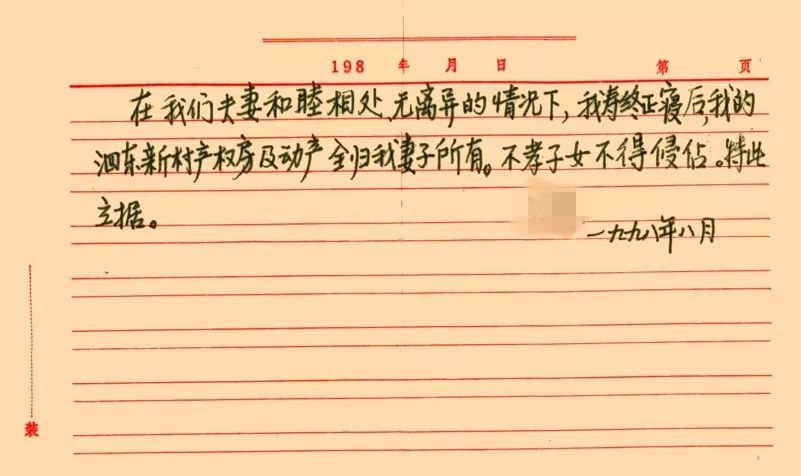 198 年 月 日 第 页
在我们夫妻和睦相处、无离异的情况下，我寿终正寝后，我的
泗东新村产权房及动产全归我妻子所有。不孝子女不得侵佔。特此
立据。
一九九八年八月
装